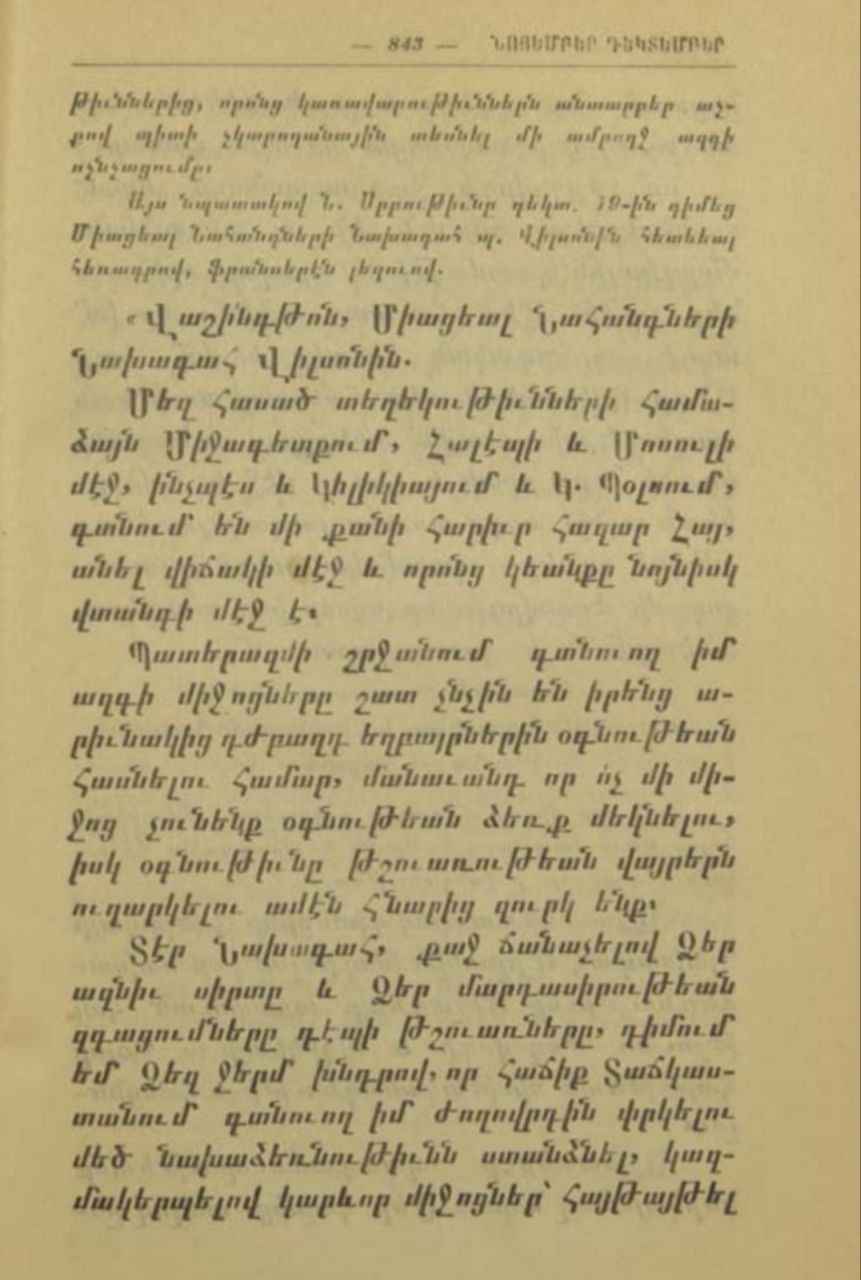 — 843 — ՆՈՅԵՄԲԵՐ ԴԵԿՏԵՄԲԵՐ
թիւններից, որոնց կառավարութիւններն անտարբեր աչ-
քով պիտի չկարողանային տեսնել մի ամբողջ ազգի
ոչնչացումը։
Այս նպատակով Ն. Սրբութիւնը դեկտ. 19-ին դիմեց
Միացեալ Նահանգների Նախագահ պ. Վիլսոնին հետեւեալ
հեռագրով, ֆրանսերէն լեզուով.
«Վաշինգթոն, Միացեալ Նահանգների
Նախագահ Վիլսոնին.
Մեզ հասած տեղեկութիւնների համա-
ձայն Միջագետքում, Հալէպի և Մոսուլի
մէջ, ինչպէս և Կիլիկիայում և Կ. Պօլսում,
գտնում են մի քանի հարիւր հազար Հայ,
անել վիճակի մէջ և որոնց կեանքը նոյնիսկ
վտանգի մէջ է։
Պատերազմի շրջանում գտնուող իմ
ազգի միջոցները շատ չնչին են իրենց ա-
րիւնակից դժբաղդ եղբայրներին օգնութեան
հասնելու համար, մանաւանդ որ ոչ մի մի-
ջոց չունենք օգնութեան ձեռք մեկնելու,
իսկ օգնութիւնը թշուառութեան վայրերն
ուղարկելու ամէն հնարից զուրկ ենք։
Տէր Նախագահ, քաջ ճանաչելով Ձեր
ազնիւ սիրտը և Ձեր մարդասիրութեան
զգացումները դէպի թշուառները, դիմում
եմ Ձեզ ջերմ խնդրով, որ հաճիք Տաճկաս-
տանում գտնուող իմ ժողովրդին փրկելու
մեծ նախաձեռնութիւնն ստանձնել, կազ-
մակերպելով կարևոր միջոցներ՝ հայթայթել